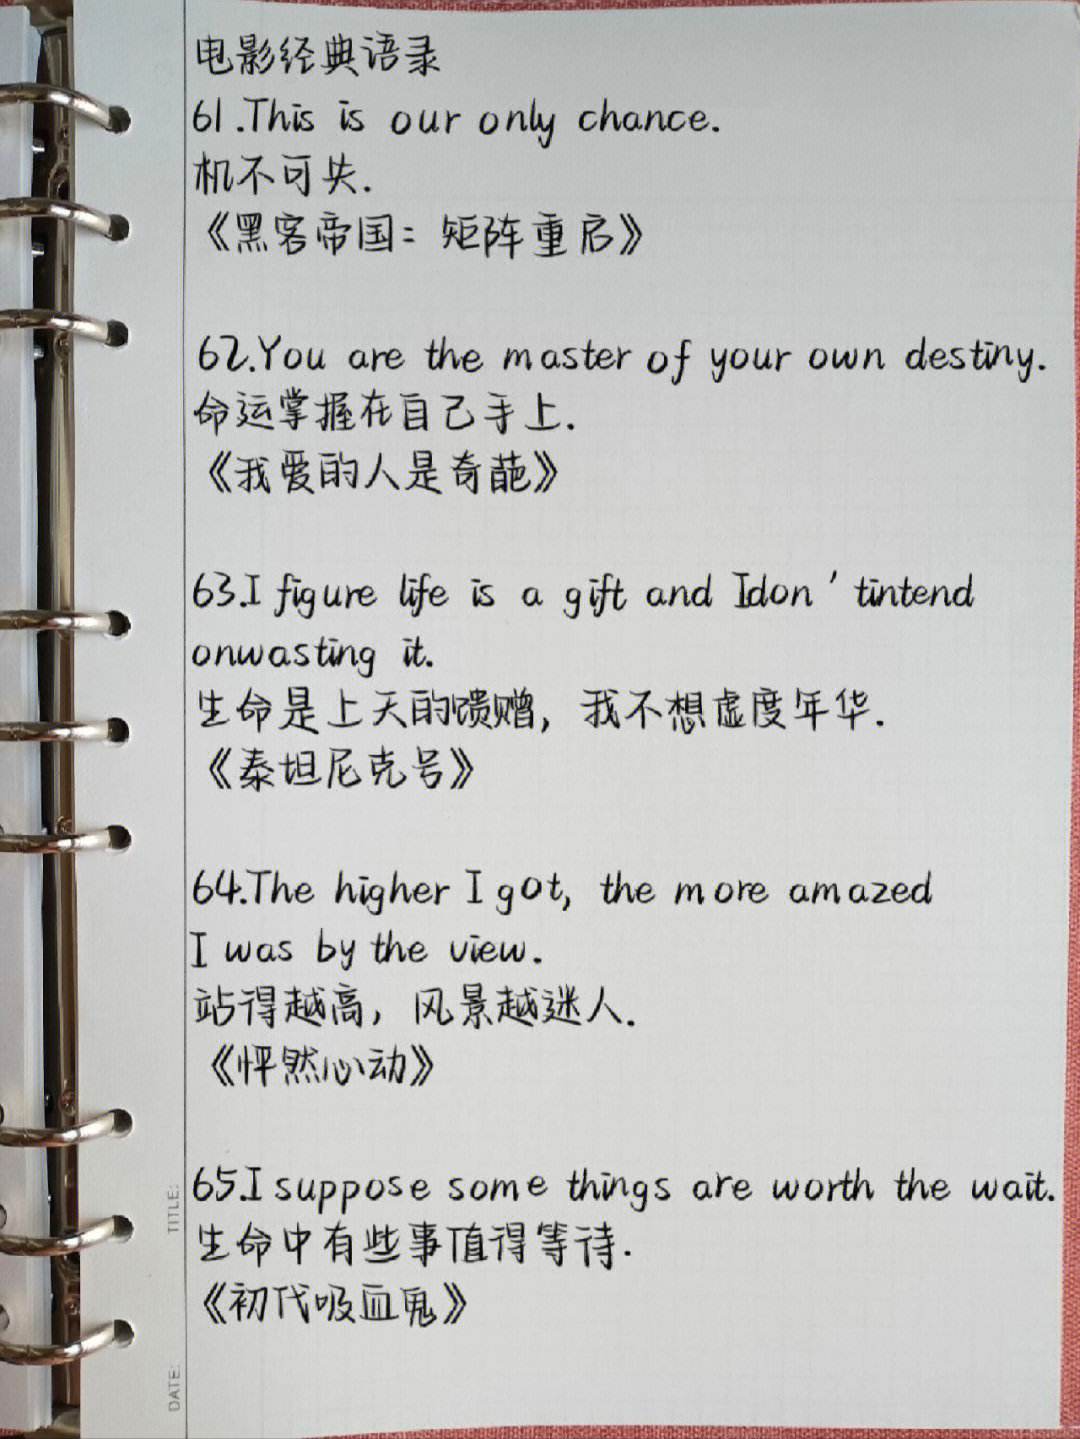 电影经典语录
61.This is our only chance.
机不可失.
《黑客帝国：矩阵重启》
62.You are the master of your own destiny.
命运掌握在自己手上.
《我爱的人是奇葩》
63.I figure life is a gift and Idon'tintend
onwasting it.
生命是上天的馈赠，我不想虚度年华.
《泰坦尼克号》
64.The higher I got, the more amazed
I was by the view.
站得越高，风景越迷人.
《怦然心动》
65.I suppose some things are worth the wait.
生命中有些事值得等待.
《初代吸血鬼》
TITLE:
DATE: